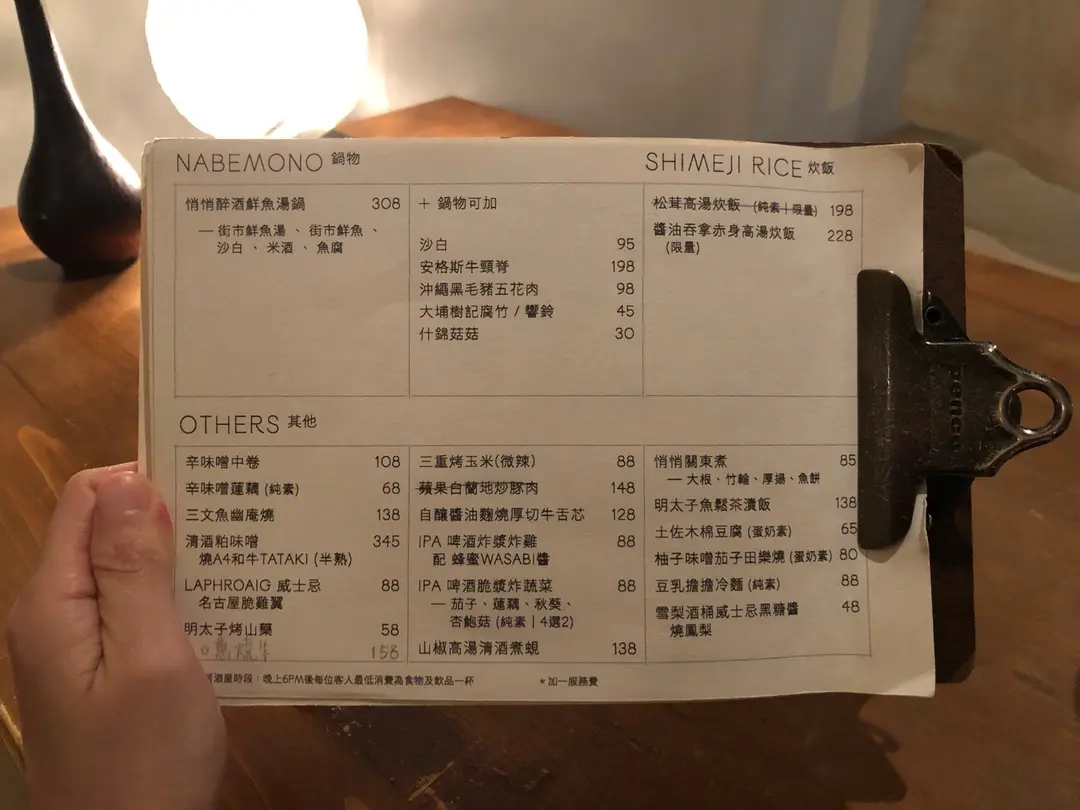 NABEMONO 鍋物
悄悄醉酒鮮魚湯鍋 308
— 街市鮮魚湯 、 街市鮮魚 、
沙白 、 米酒 、 魚腐
+ 鍋物可加
沙白 95
安格斯牛頸脊 198
沖繩黑毛豬五花肉 98
大埔樹記腐竹 / 響鈴 45
什錦菇菇 30
SHIMEJI RICE 炊飯
松茸高湯炊飯 (純素 | 限量) 198
醬油吞拿赤身高湯炊飯 228
(限量)
OTHERS 其他
辛味噌中卷 108
辛味噌蓮藕 (純素) 68
三文魚幽庵燒 138
清酒粕味噌 345
燒A4和牛TATAKI (半熟)
LAPHROAIG 威士忌 88
名古屋脆雞翼
明太子烤山藥 58
蔥燒牛 158
三重烤玉米(微辣) 88
蘋果白蘭地炒豚肉 148
自釀醬油麴燒厚切牛舌芯 128
IPA 啤酒炸漿炸雞 88
配 蜂蜜WASABI醬
IPA 啤酒脆漿炸蔬菜 88
— 茄子、蓮藕、秋葵、
杏鮑菇 (純素 | 4選2)
山椒高湯清酒煮蜆 138
悄悄關東煮 85
— 大根、竹輪、厚揚、魚餅
明太子魚鬆茶漬飯 138
土佐木棉豆腐 (蛋奶素) 65
柚子味噌茄子田樂燒 (蛋奶素) 80
豆乳擔擔冷麵 (純素) 88
雪梨酒桶威士忌黑糖醬 48
燒鳳梨
酒屋時段 : 晚上6PM後每位客人最低消費為食物及飲品一杯
*加一服務費
penco